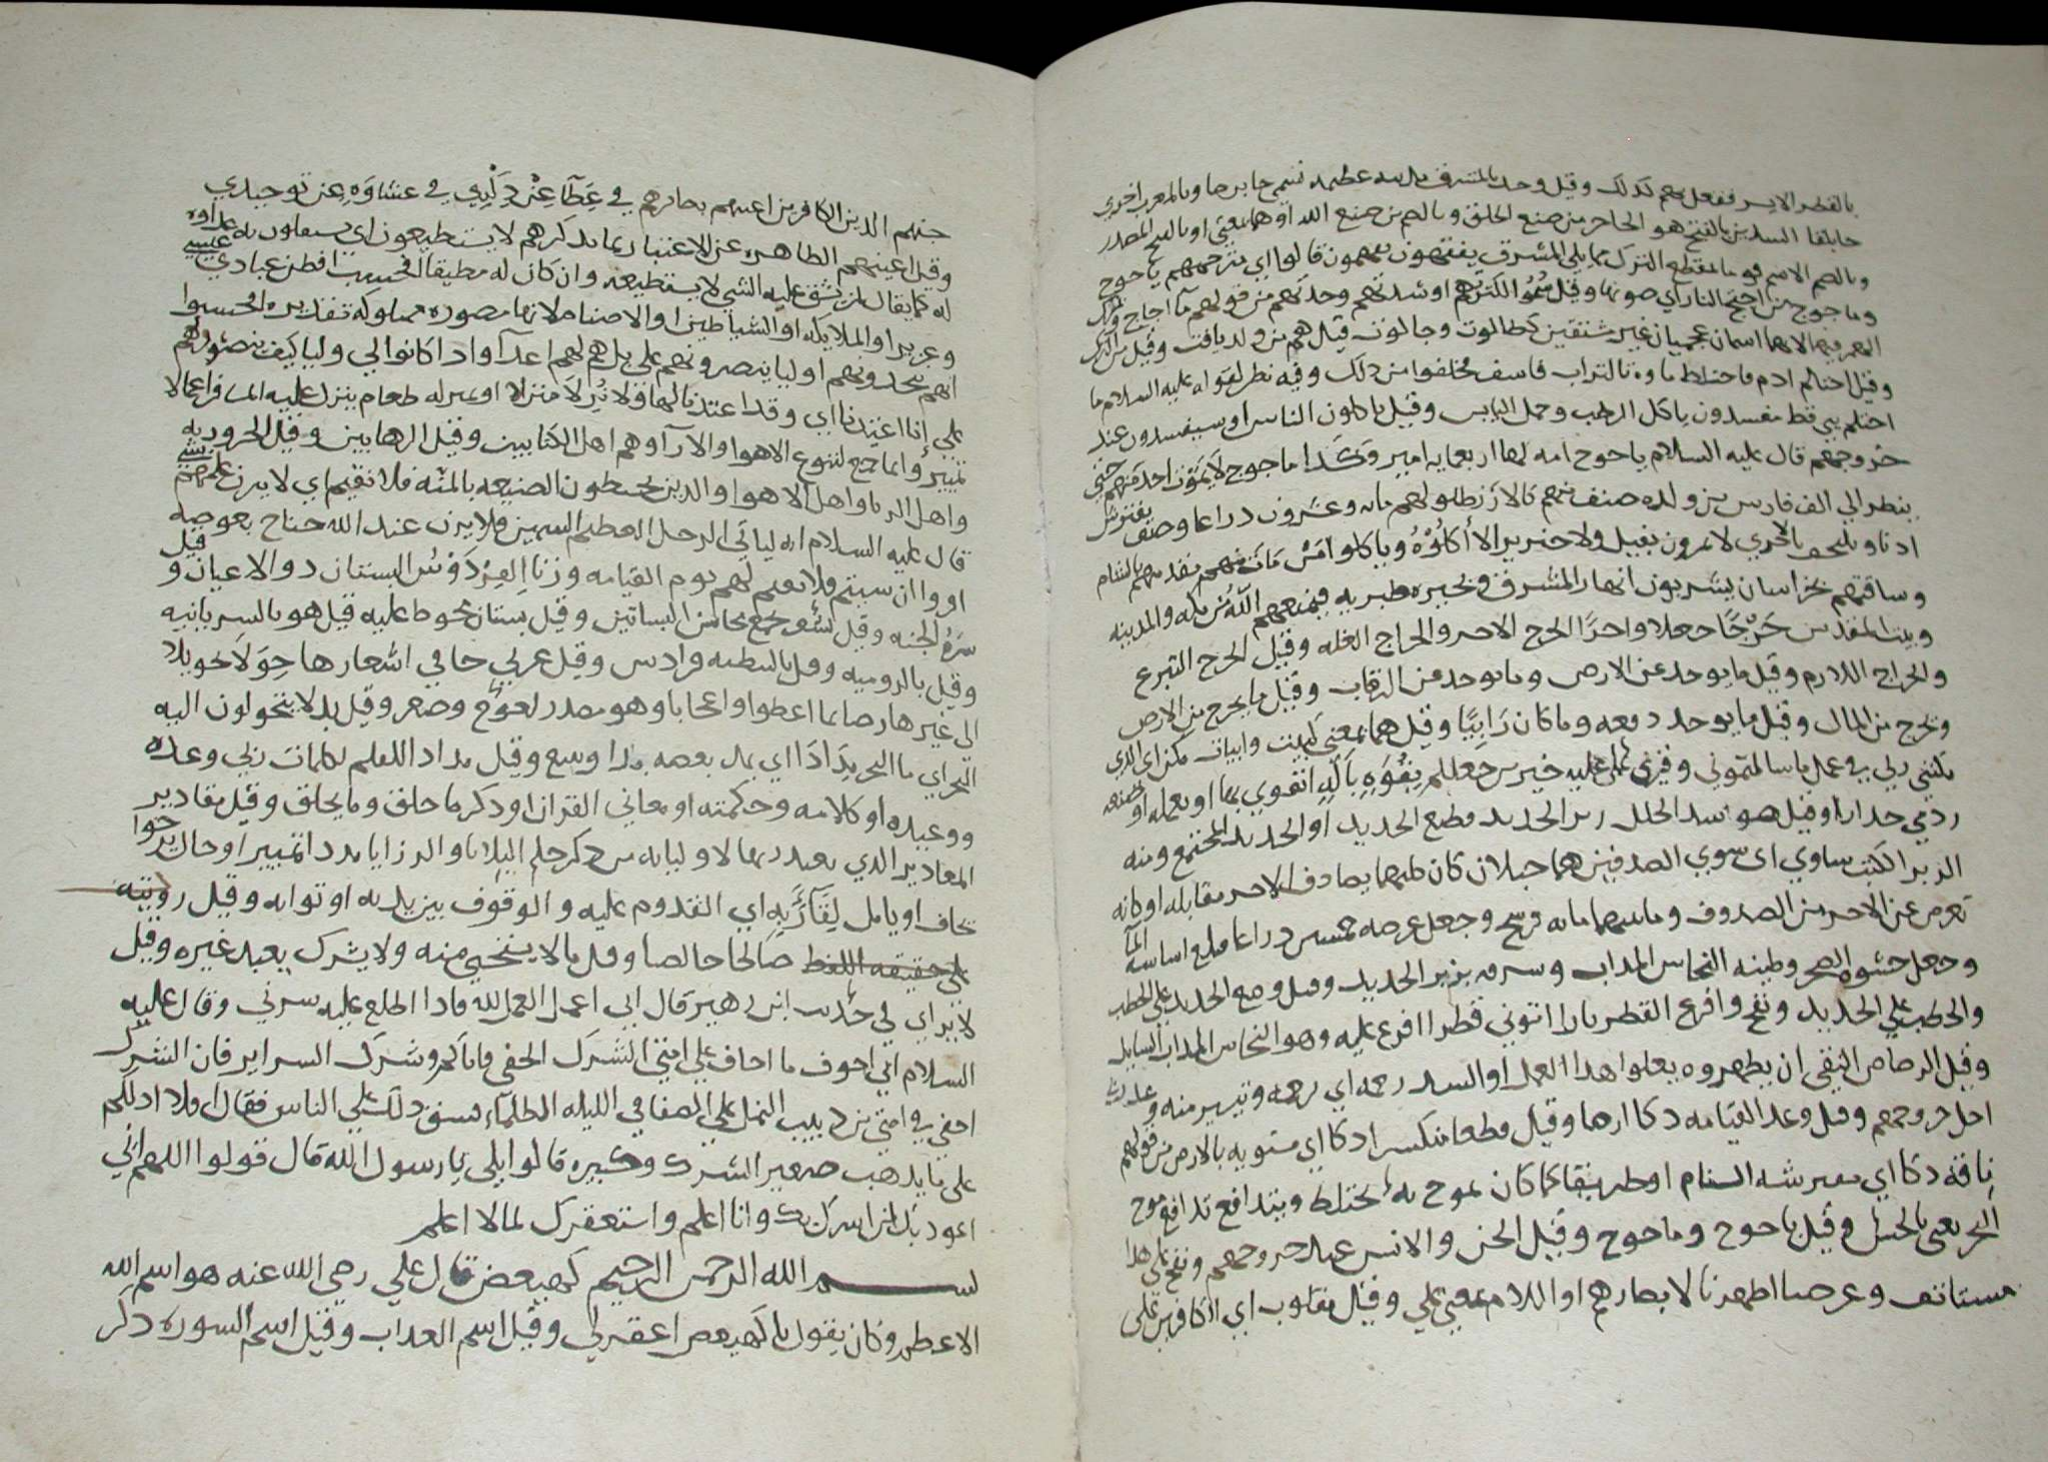 بالقطر الايسر ففعل بهم كذلك وقيل وجد بالمشرق مدينه عظيمه تسمى جابرصا وبالمغرب اخرى
جابلقا السدين بالفتح هو الحاجز من صنع الخلق وبالضم من صنع الله او هما بمعنى او بالفتح المصدر
وبالضم الاسم قوما بمقطع الترك مما يلي المشرق يفقهون يفهمون قالوا اي مترجمهم ياجوج
وماجوج من اجيج النار اي ضوئها وقيل سموا لكثرتهم او شدتهم وحدتهم من قولهم ما اجاج وترك
الهمز فيهما لانهما اسمان عجميان غير مشتقين كطالوت وجالوت قيل هم من ولد يافث وقيل من الترك
وقيل احتلم ادم فاختلط ماوه بالتراب فاسف فخلقوا من ذلك وفيه نظر لقوله عليه السلام ما
احتلم نبي قط مفسدون باكل الرطب وحمل اليابس وقيل ياكلون الناس او سيفسدون عند
خروجهم قال عليه السلام ياجوج امه لها اربعمايه امير وكذا ماجوج لا يموت احد منهم حتى
ينظر الى الف فارس من ولده صنف منهم كالارز طولهم مايه وعشرون ذراعا وصنف يفترش
اذنا ويلتحف بالاخرى لا يمرون بفيل ولا خنزير الا أكلوه وياكلوا من مات منهم مقدمتهم بالشام
وساقتهم بخراسان يشربون انهار المشرق وبحيره طبريه فيمنعهم الله من مكه والمدينه
وبيت المقدس خرجا جعلا واجرا الخرج الاجر والخراج الغله وقيل الخرج التبرع
والخراج اللازم وقيل ما يوخذ عن الارض وما يوخذ عن الرقاب وقيل ما يخرج من الارض
وخرج من المال وقيل ما يوخذ دفعه وما كان راتبا وقيل هما بمعنى كبيت وابيات مكني اي الذي
مكنني ربي في عمل ما سالتموني وقدرني على عمله خير من جعلكم بقوه بآله اتقوى بها او بعمله او صنعه
ردما جدارا وقيل هو سد الخلل زبر الحديد قطع الحديد او الحديد المجتمع ومنه
الزبر الكتب ساوى اى سوى الصدفين هما جبلان كان كل منهما يصادف الاخر مقابله او كانه
يعرض عن الاخر من الصدوف وما بينهما مايه فرسخ وجعل عرضه خمسين ذراعا فبلغ اساسه الما
وجعل حشوه الصخر وطينه النحاس المذاب وسرفه بزبر الحديد وقيل وضع الحديد على الحطب
والحطب على الحديد ونفخ وافرغ القطر نارا اتوني قطرا افرغ عليه وهو النحاس المذاب السايل
وقيل الرصاص النقي ان يظهروه يعلوا هذا العمل او السد رحمه اي نعمه وتيسير منه وعد ربي
اجل خروجهم وقيل وعد القيامه دكا ارضا وقيل قطعا متكسرا دكا اي مستويه بالارض من قولهم
ناقة دكا اي مفترشه السنام او طريقا كما كان يموج به يختلط ويتدافع تدافع موج
البحر يعني بالخلق وقيل ياجوج وماجوج وقيل الجن والانس عند خروجهم ونفخ على هذا
مستانف وعرضنا اظهرنا لابصارهم او اللام بمعنى على وقيل مقلوب اي الكافرين على
جنهم الذين الكافرين اعينهم بصائرهم في غطآ عن ذكري في غشاوه عن توحيدي
وقيل اعينهم الظاهره عن الاعتبار بما يذكرهم لا يستطيعون اي يستقلون به عداوه
له كما يقال لمن يشق عليه الشي لا يستطيعه وان كان له مطيقا افحسب افظن عبادي عيسى
وعزيرا والملايكه او الشياطين او الاصنام لانها مصوره مملوكه تقديره افحسبوا
انهم يتخذونهم اوليا ينصرونهم على بل هم لهم اعدآ واذا كانوا لي وليا كيف ينصرونهم
علي إنا اعتدنا اي وقد اعتدنا لها ولا نزلا منزلا او نزله طعام ينزل عليه المسافر اعمالا
تمييز وانما جمع لتنوع الاهوا والارآ وهم اهل الكتابين وقيل الرهابين وقيل الحروريه
واهل الريا واهل الاهوا والذين يحبطون الصنيعه بالمنه فلا نقيم اي لا يزن علمهم شي
قال عليه السلام انه لياتي الرجل العظيم السمين فلا يزن عند الله جناح بعوضه
اقروا ان شيتم فلا نقيم لهم يوم القيامه وزنا الفردوس البستان ذو الاعيان وقيل
سره الجنه وقيل يجمع محاسن البساتين وقيل بستان محوط عليه قيل هو بالسريانيه
وقيل بالروميه وقيل بالنبطيه فرادس وقيل عربي جا في اشعارها حولا تحويلا
الى غيرها رضا بما اعطوا واعجابا وهو مصدر كعوج وصغر وقيل بدلا يتحولون اليه
البحر اي ما البحر مدادا اي يمد بعضه بعضا وسع وقيل مداد القلم لكلمات ربي وعده
ووعيده او كلامه وحكمته او معاني القران او ذكر ما خلق وما يخلق وقيل مقادير
المعادير الذي يعتذر بها لاوليايه من ذكر حلم البلايا والرزايا مددا تمييز او حال يرجوا
يخاف او يامل لقآ ربه اي القدوم عليه والوقوف بين يديه او ثوابه وقيل رويته
على حقيقه اللفظ صالحا خالصا وقيل مالا يستحيى منه ولا يشرك يعبد غيره وقيل
لا يراي في حديث ابن زهير قال اني اعمل العمل لله فاذا اطلع عليه سرني وقال عليه
السلام اني اخوف ما اخاف على امتي الشرك الخفي واياكم وشرك السراير فان الشرك
اخفى في امتي من دبيب النمل على الصفا في الليله الظلماء فشق ذلك على الناس فقال افلا ادلكم
على ما يذهب صغير الشرك وكبيره قالوا بلى يا رسول الله قال قولوا اللهم اني
اعوذ بك ان اشرك بك وانا اعلم واستغفرك لما لا اعلم
بسم الله الرحمن الرحيم كهيعص قال علي رضي الله عنه هو اسم الله
الاعظم وكان يقول يا كهيعص اغفر لي وقيل اسم العذاب وقيل اسم السوره ذكر